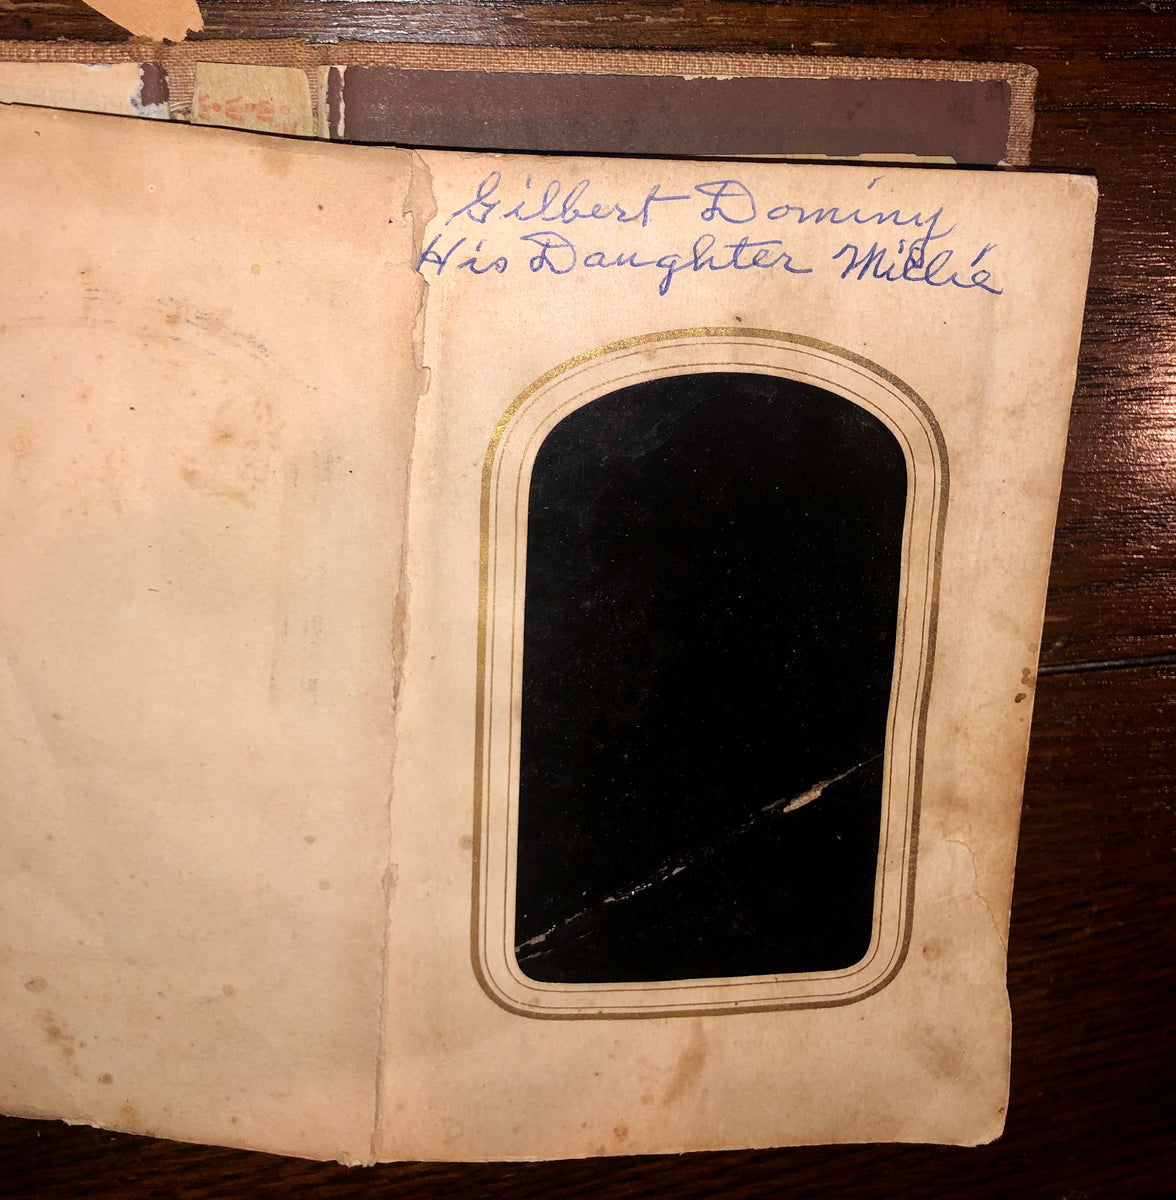 Gilbert Dominy
His Daughter Millie